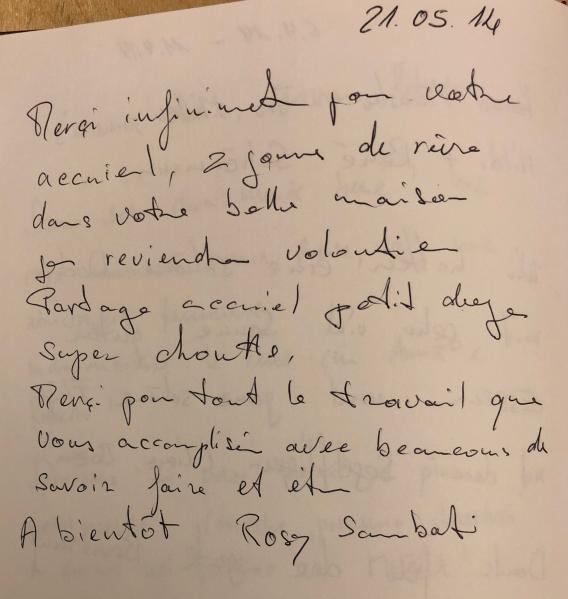 21.05.14
Merçi infiniment pour votre
accuiel, 2 jours de rêve
dans votre belle maison
je reviendra volontier
Partage accuiel petit
super chouette,
Merçi pour tout le travail que
vous accomplisé avec beaucous de
savoir faire et être
A bientôt Rosy Sambati